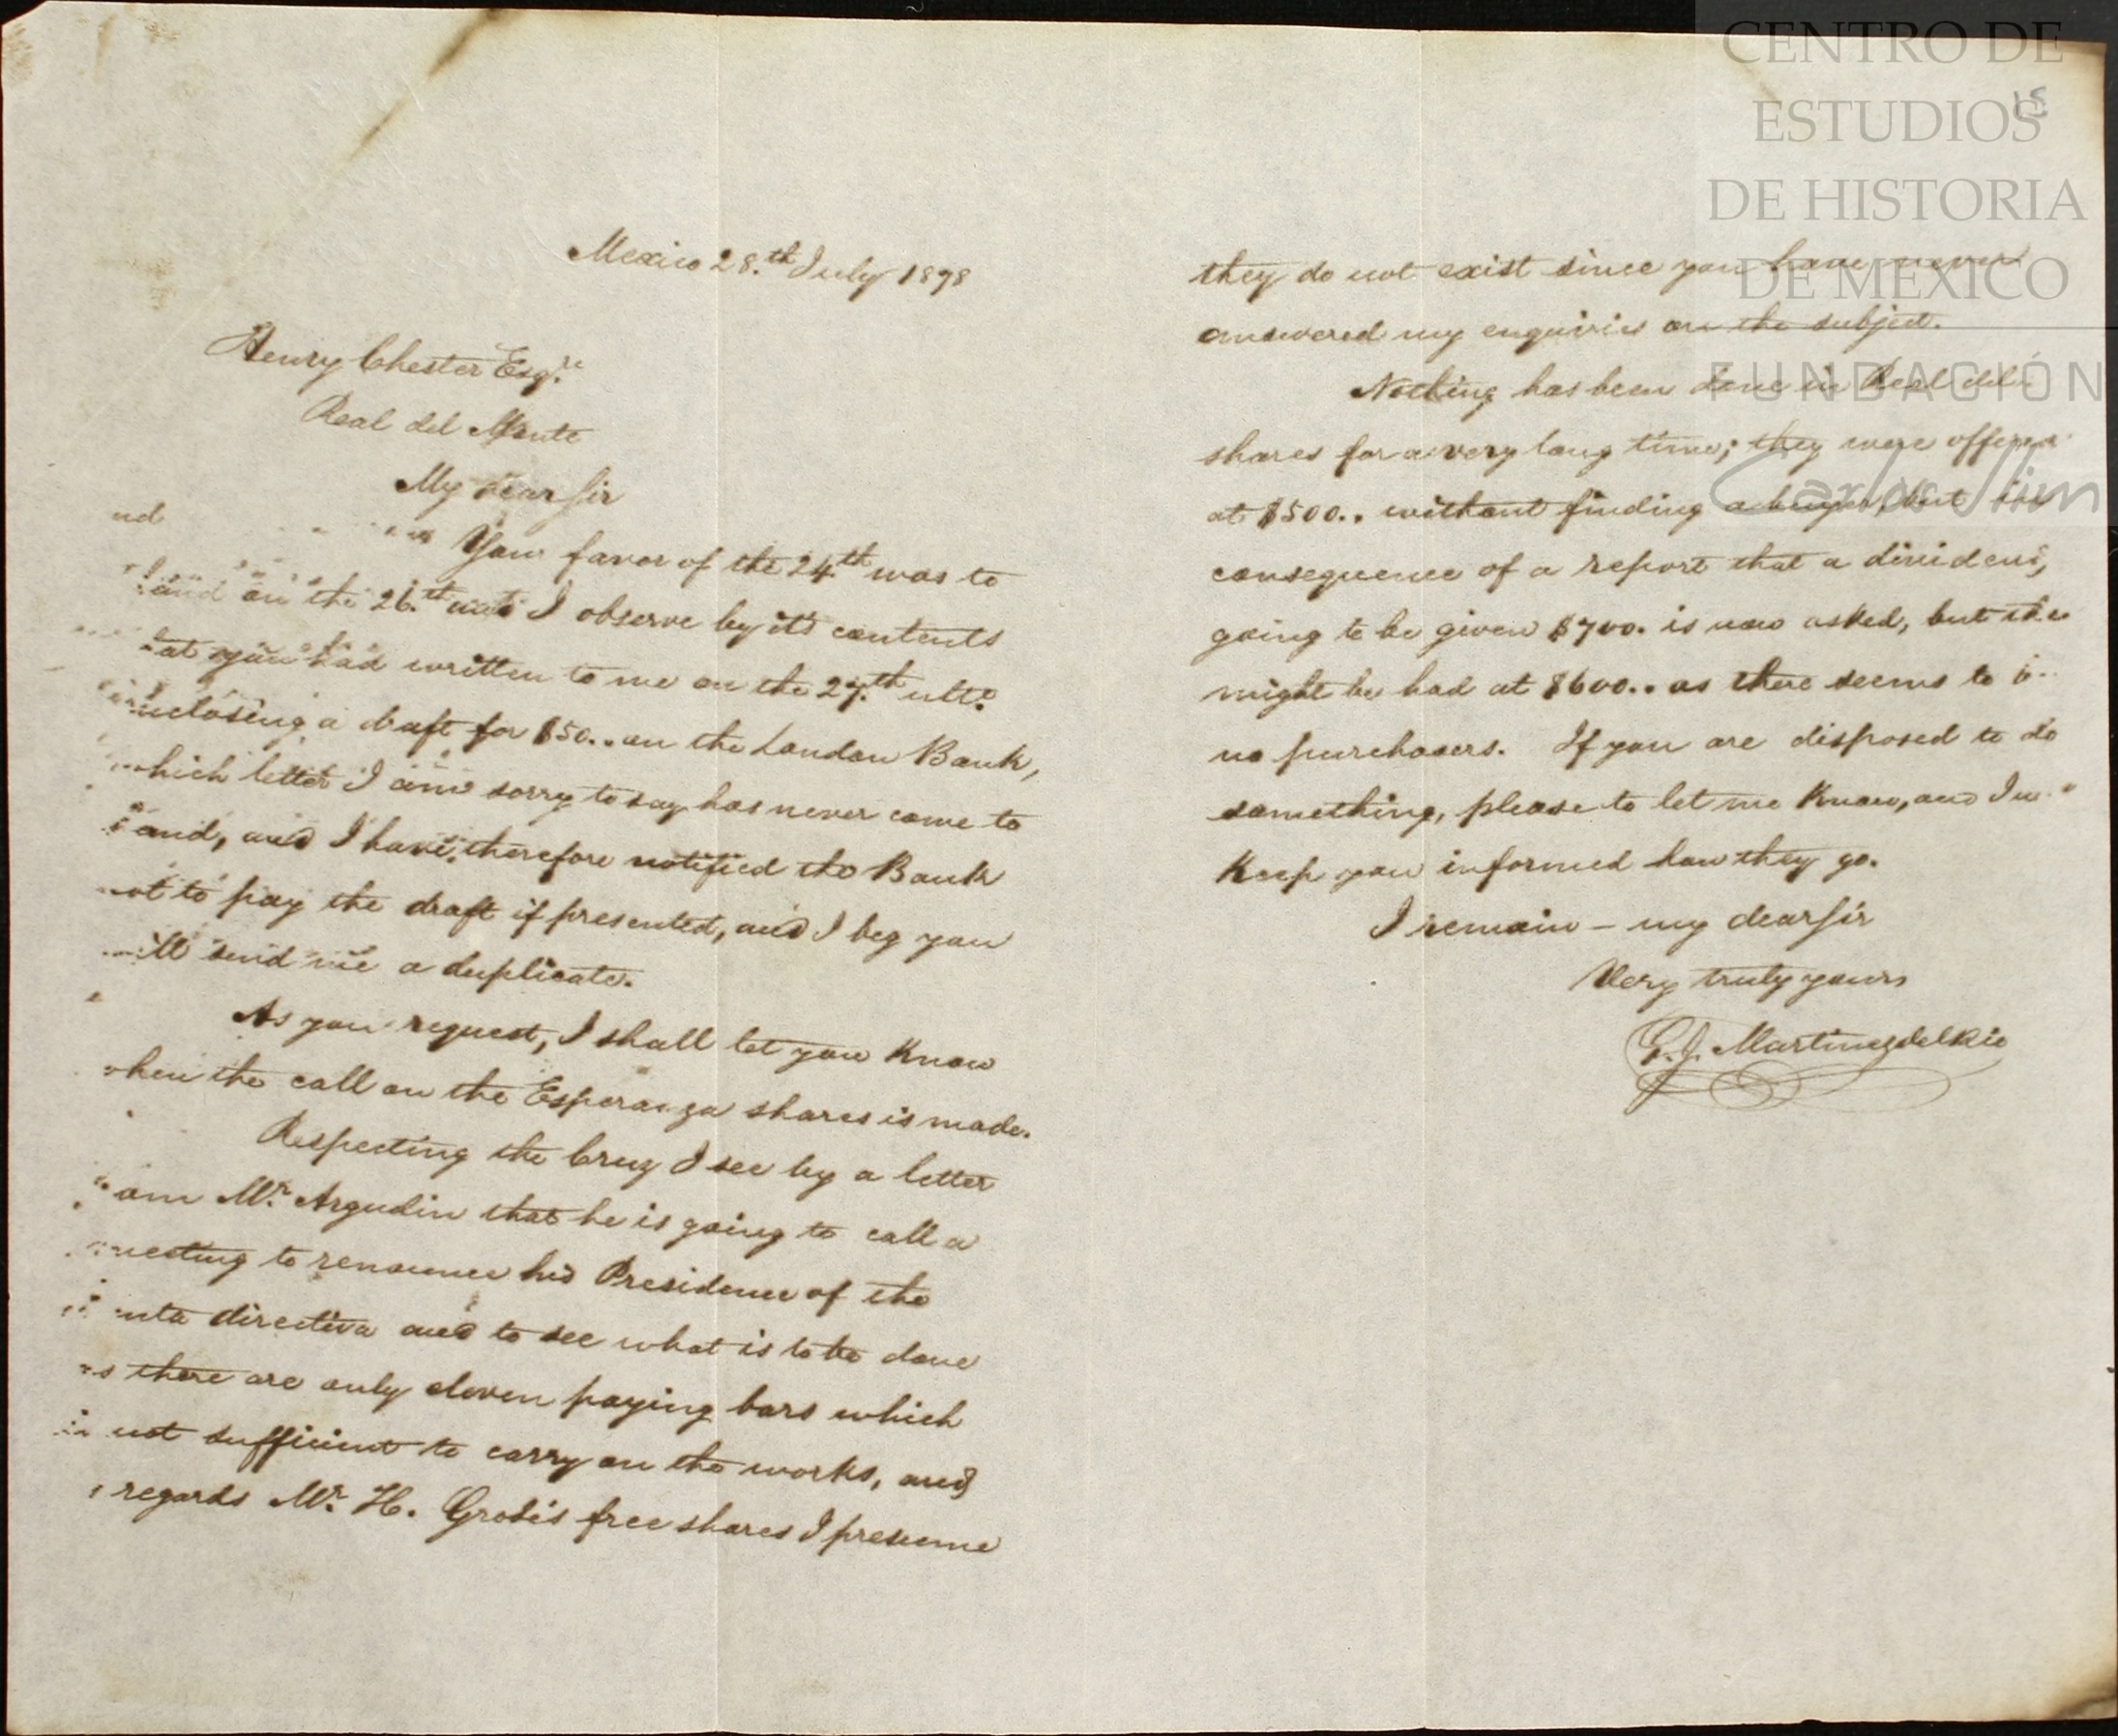 Mexico 28.th July 1898
Henry Chester Esq.re
Real del Monte
My dear Sir
Your favor of the 24.th was to
hand on the 26.th and I observe by its contents
that you had written to me on the 27.th ult.o
inclosing a draft for $50.. on the London Bank,
which letter I am sorry to say has never come to
hand, and I have therefore notified the Bank
not to pay the draft if presented, and I beg you
will send me a duplicate.
As you request, I shall let you know
when the call on the Esperanza shares is made.
Respecting the Cruz I see by a letter
from Mr. Argudin that he is going to call a
meeting to renounce his Presidence of the
Junta directiva and to see what is to be done
as there are only eleven paying bars which
is not sufficient to carry on the works, and
regards Mr. H. free shares I presume
15
they do not exist since you have never
answered my enquiries on the subject.
Nothing has been done in Real del
shares for a very long time; they were offered
at $500.. without finding a buyer, but in
consequence of a report that a dividend,
going to be given $700. is now asked, but
might be had at $600.. as there seems to
no purchasers. If you are disposed to do
something, please to let me know, and I
keep you informed how they go.
I remain – my dear Sir
Very truly yours
G. J. Martinezdelrio
CENTRO DE
ESTUDIOS
DE HISTORIA
DE MEXICO
FUNDACIÓN
Carlos Slim